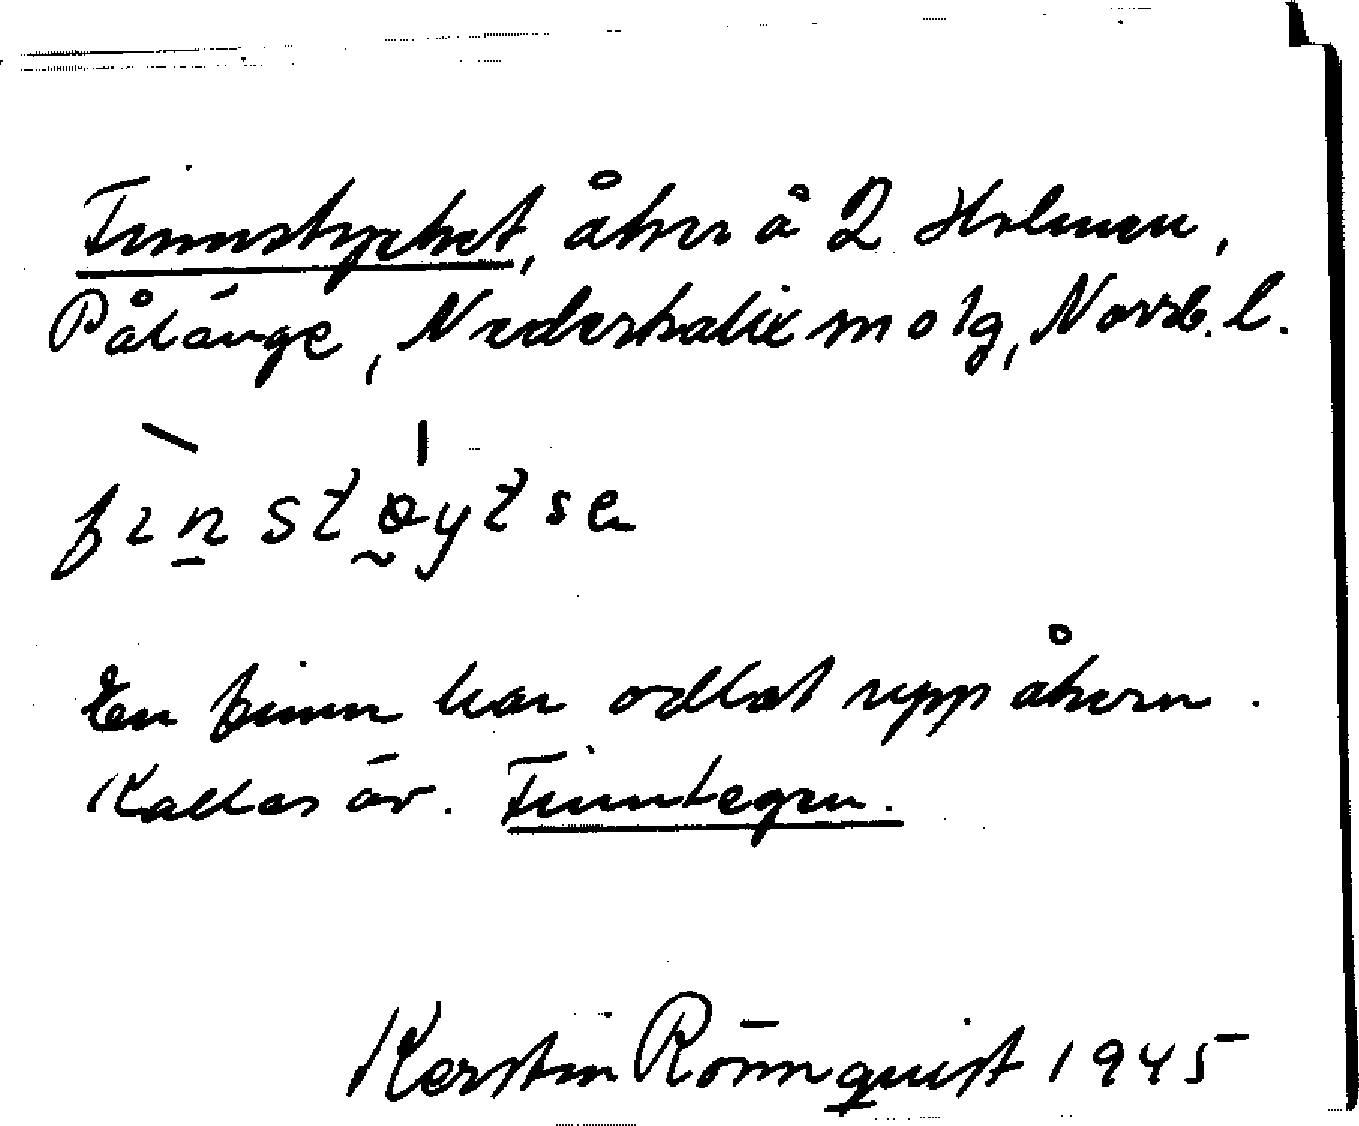 Finnstycket, åker å 2 Holmen,
Pålänge, Nederkalix sn o tg, Norrb. l.
fınstøytse
En finne har odlat upp åkern.
Kallas äv. Finntegen.
Kerstin Rönnquist 1945